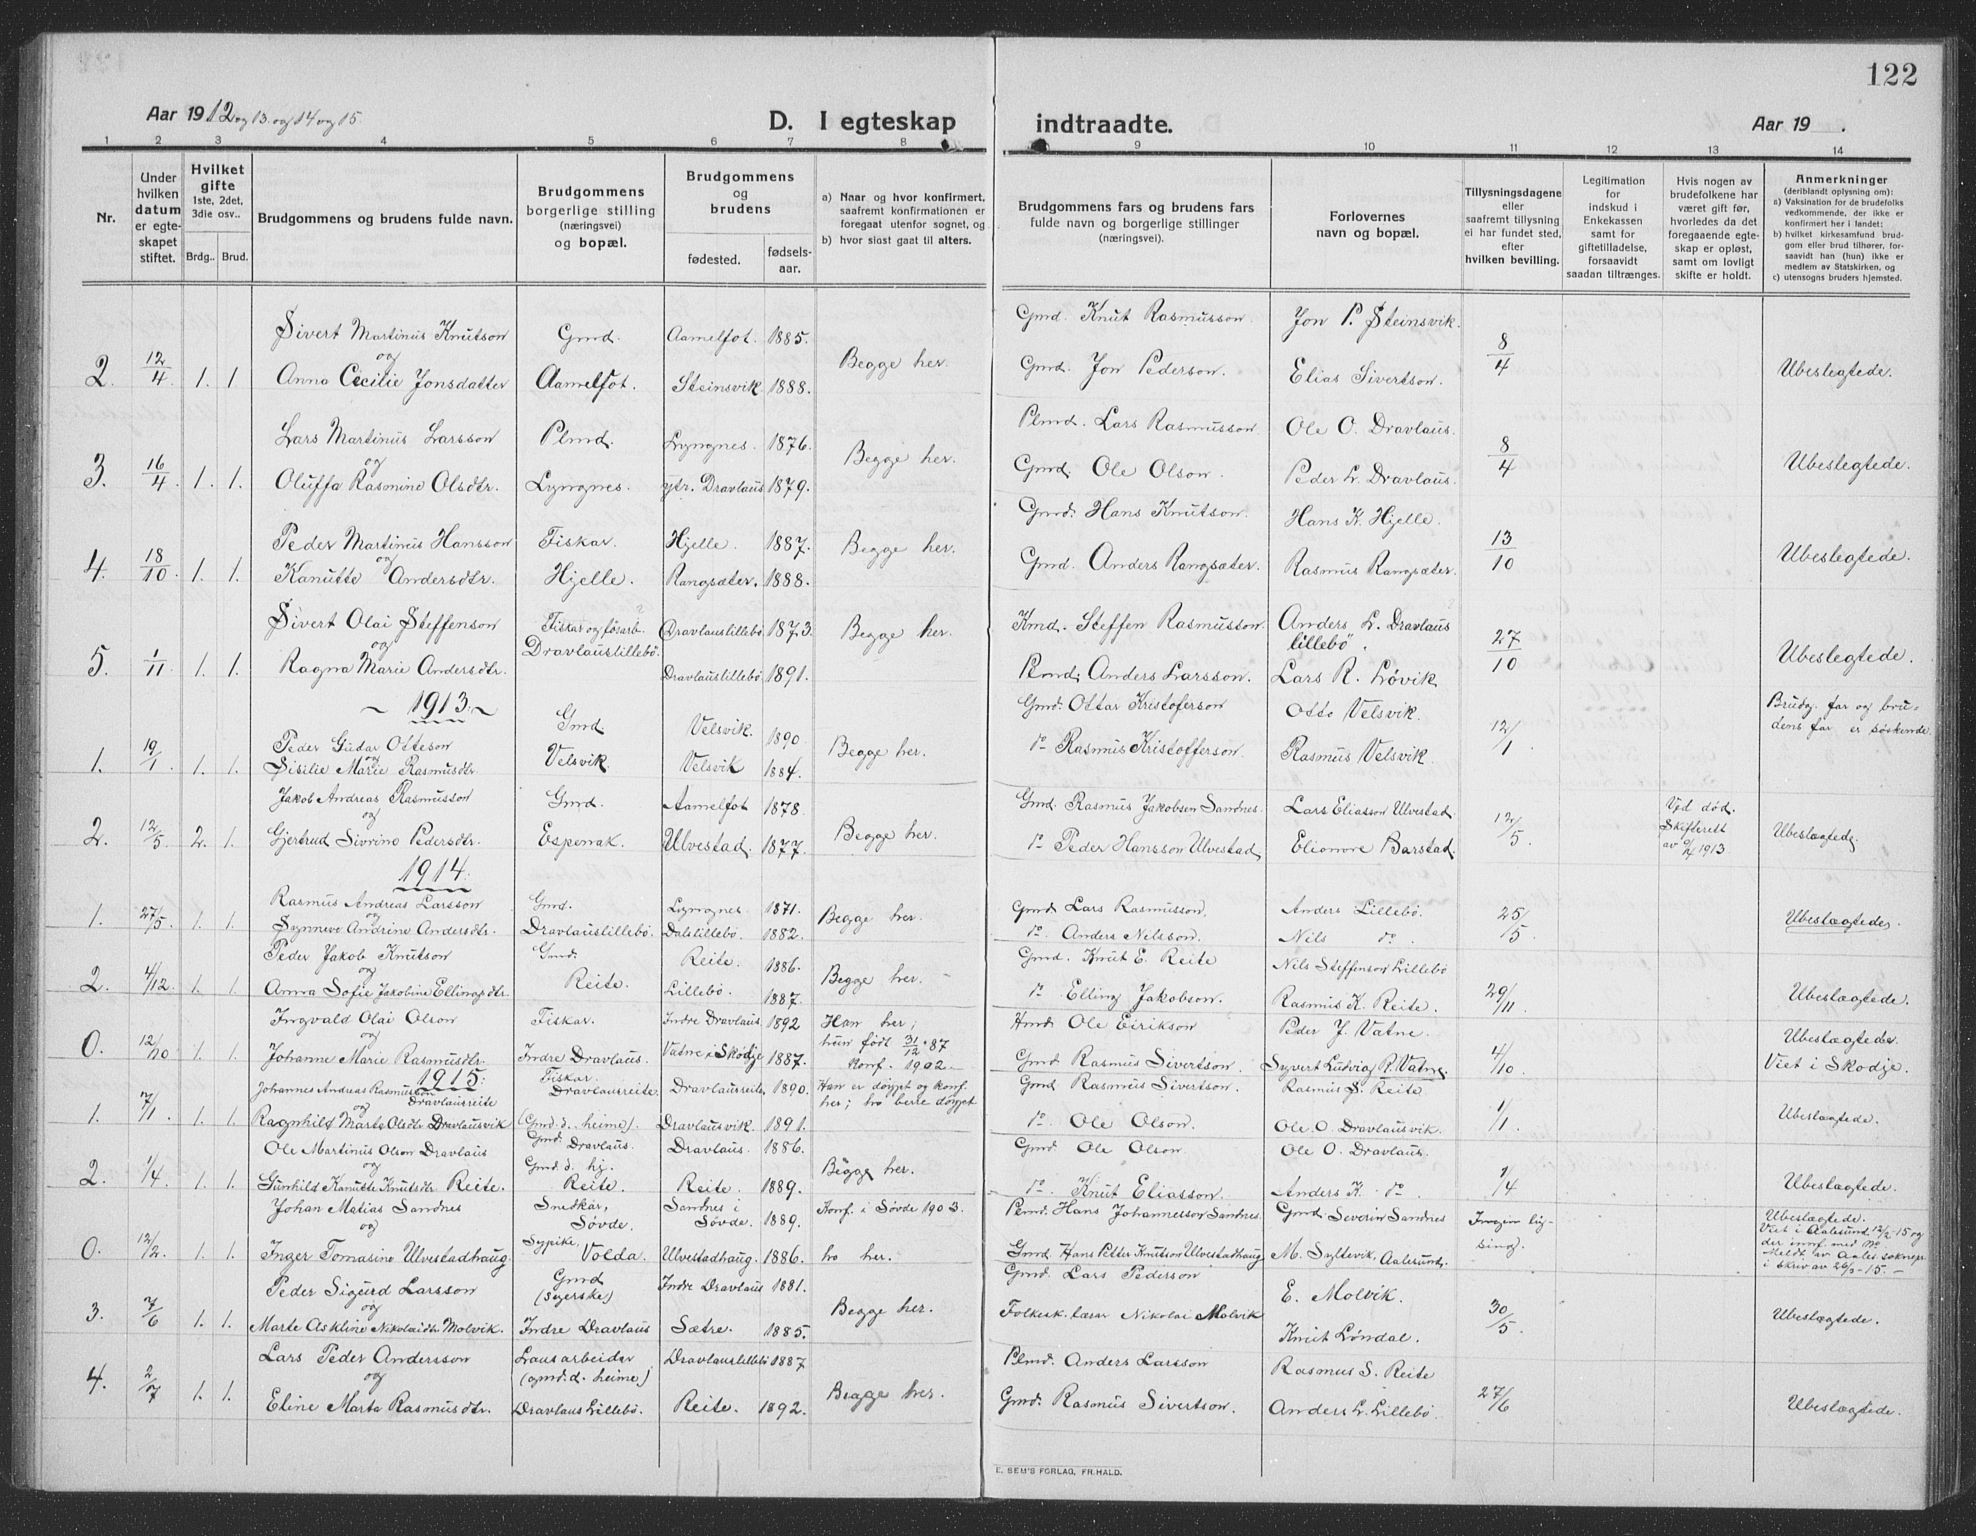 122
Aar 1912 og 13. og 14 og 15.
D. I egteskap indtraadte.
Aar 19 .
1 2 3 4 5 6 7 8 9 10 11 12 13 14
Nr.
Under hvilken datum er egteskapet stiftet.
Hvilket gifte 1ste, 2det, 3die osv..
Brdg.. Brud.
Brudgommens og brudens fulde navn.
Brudgommens borgerlige stilling (næringsvei) og bopæl.
Brudgommens og brudens
fødested. fødselsaar.
a) Naar og hvor konfirmert, saafremt konfirmationen er foregaat utenfor sognet, og
b) hvor sisst gaat til alters.
Brudgommens fars og brudens fars fulde navn og borgerlige stillinger (næringsvei).
Forlovernes navn og bopæl.
Tillysningsdagene eller saafremt tillysning ei har fundet sted, efter hvilken bevilling.
Legitimation for indskud i Enkekassen samt for giftetilladelse, forsaavidt saadan tiltrænges.
Hvis nogen av brudefolkene har været gift før, hvorledes da det foregaaende egteskap er opløst, samt om lovligt skifte er holdt.
Anmerkninger (deriblandt oplysning om):
a) Vaksination for de brudefolks vedkommende, der ikke er konfirmert her i landet:
b) hvilket kirkesamfund brudgom eller brud tilhører, forsaavidt han (hun) ikke er medlem av Statskirken, og
c) utensogns bruders hjemsted.
Sivert Martinus Knutson Gmd. Aamelfot. 1885. Gmd. Knut Rasmusson Jon P. Steinsvik.
2. 12/4 1. 1 og Begge her. 8/4 Ubeslegtede.
Anna Cecilie Jonsdatter Aamelfot. Steinsvik 1888. Gmd. Jon Pederson. Elias Sivertson.
Lars Martinus Larsson Plmd. Lyngnes. 1876. Plmd. Lars Rasmusson Ole O. Dravlaus.
3. 16/4 1. 1. og Begge her. 8/4 Ubeslegtede.
Oluffa Rasmine Olsdtr. Lyngnes. ytr. Dravlaus 1879. Gmd. Ole Olson. Peder L. Dravlaus.
Peder Martinus Hansson Fiskar. Hjelle. 1887. Gmd. Hans Knutson. Hans K. Hjelle.
4. 18/10 1. 1. og Begge her. 13/10 Ubeslegtede.
Kanutte Andersdtr. Hjelle. Rangsæter. 1888. Gmd. Anders Rangsæter. Rasmus Rangsæter.
Sivert Olai Steffenson Fiskar og fosarb. Dravlauslillebø 1873. Kmd. Steffen Rasmusson Anders L. Dravlaus lillebø.
5. 1/11 1. 1. og Dravlauslillebø. Begge her. 27/10 Ubeslegtede.
Ragna Marie Andersdtr. Dravlauslillebø 1891. Anders Larsson. Lars R. Løvik
1913.
Peder Gudar Otteson Gmd Velsvik. 1890 Gmd. Ottar Kristoferson Otto Velsvik.
1. 19/1 1. 1. og Begge her. 12/1 Brudg. far og brudens far er søskende.
Sisilie Marie Rasmusdtr. Velsvik Velsvik 1884. do Rasmus Kristofferson. Rasmus Velsvik
Jakob Andreas Rasmusson Gmd. Aamelfot 1878. Gmd. Rasmus Jakobsen Sandnes. Lars Eliasson Ulvestad
2. 12/5 2. 1. og Begge her. 12/5 Ved død. Skifterett av 9/4 1913 Ubeslægtede.
Gjertrud Sivrine Pedersdtr. Espenak. Ulvestad. 1877. do Peder Hansson Ulvestad Elionore Barstad.
1914.
Rasmus Andreas Larsson Gmd. Lyngnes 1871. Gmd Lars Rasmusson. Anders Lillebø.
1. 27/5 1. 1. og Begge her. 25/5 Ubeslægtede.
Synneve Andrine Andersdtr. Dravlauslillebø. Dalslillebø. 1882. do. Anders Nilsson. Nils do.
Peder Jakob Knutson Gmd. Reite. 1886. Gmd. Knut E. Reite Nils Steffenson Lillebø
2. 4/12. 1. 1. og Begge her. 29/11 Ubeslægtede.
Anna Sofie Jakobine Ellingsdtr. Reite. Lillebø. 1887. do Elling Jakobson. Rasmus K. Reite.
Ingvald Olai Olson Fiskar. Indre Dravlaus 1892 Han her; Hmd Ole Eirikson Peder J. Vatne.
0. 12/10 1. 1. og hun født 31/12.87 Konf. 1902. 4/10 Ubeslægtede. Viet i Skodje.
Johanne Marie Rasmusdtr. Indre Dravlaus. Vatne i Skodje 1887. Gmd Rasmus Sivertson. Syvert Ludvig R. Vatne.
1915.
Johannes Andreas Rasmusson Dravlausreite Fiskar. Dravlausreite. Dravlausreite, 1890. Han er døypt og konf. her; ho berre døypt Gmd Rasmus Sivertson. Rasmus S. Reite
1. 7/1 1. 1. og 1/1. Ubeslægtede.
Ragnhild Marta Olsdtr Dravlausvik (Gmd. d. heime). Dravlausvik. 1891. do. Ole Olson. Ole. O. Dravlausvik.
Ole Martinus Olson Dravlaus Gmd Dravlaus. Dravlaus. 1886. Gmd. Ole Olson Ole O. Dravlaus.
2. 1/4 1. 1. og Gmd. d. hj. Begge her. 1/4 Ubeslægtede.
Gunhild Kanutte Knutsdtr Reite. Reite. Reite. 1889. do. Knut Eliasson Anders K. do
Johan Matias Sandnes Snedkar, Søvde. Sandnes i Søvde. 1889. Konf. i Søvde 1903. Plmd. Hans Johannesson Sandnes Gmd Severin Sandnes
0. 12/2. 1. 1. og Ingen lysing. Ubeslægtede. Viet i Aalesund 12/2-15 og der innf. med No Meldt av Aales. soknepr. i skriv av 26/2-15.
Inger Tomasine Ulvestadhaug. Sypike, Volda. Ulvestadhaug. 1886. ho her. Gmd Hans Petter Knutson Ulvestadhaug M. Syltevik, Aalesund.
Peder Sigurd Larsson Gmd Indre Dravlaus 1881. Gmd. Lars Pederson E. Molvik.
3. 7/6 1. 1. og Begge her. 30/5. Ubeslægtede.
Marte Askline Nikolaidtr Molvik. Indre Dravlaus Sætre. 1885. Folkesk. lærar Nikolai Molvik Knut Løndal.
Lars Peder Andersson Lausarbeidar (gmd. d. heime) Dravlauslillebø 1887 Plmd. Anders Larsson Rasmus S. Reite
4. 2/7 1. 1. og Begge her. 27/6 Ubeslægtede.
Eline Marta Rasmusdtr. Dravlaus Lillebø. Reite. 1892. Gmd. Rasmus Sivertson. Anders L. Lillebø.
E. SEM'S FORLAG, FR.HALD.